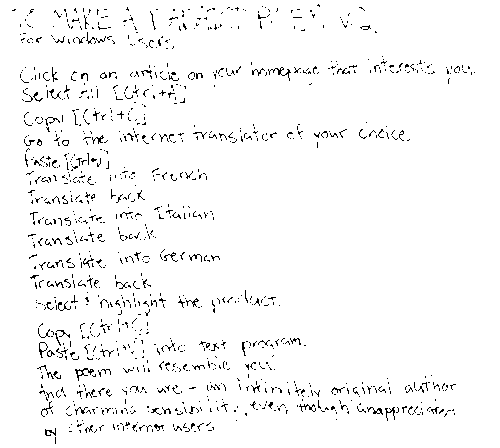 TO MAKE A DADAIST POEM v2.
For Windows Users
Click on an article on your homepage that interests you.
Select All [Ctrl+A]
Copy [Ctrl+C]
Go to the internet translator of your choice.
Paste [Ctrl+V]
Translate into French
Translate back
Translate into Italian
Translate back
Translate into German
Translate back
Select & highlight the product.
Copy [Ctrl+C]
Paste [Ctrl+V] into text program.
The poem will resemble you.
And there you are - an infinitely original author
of charming sensibility, even though unappreciated
by other internet users